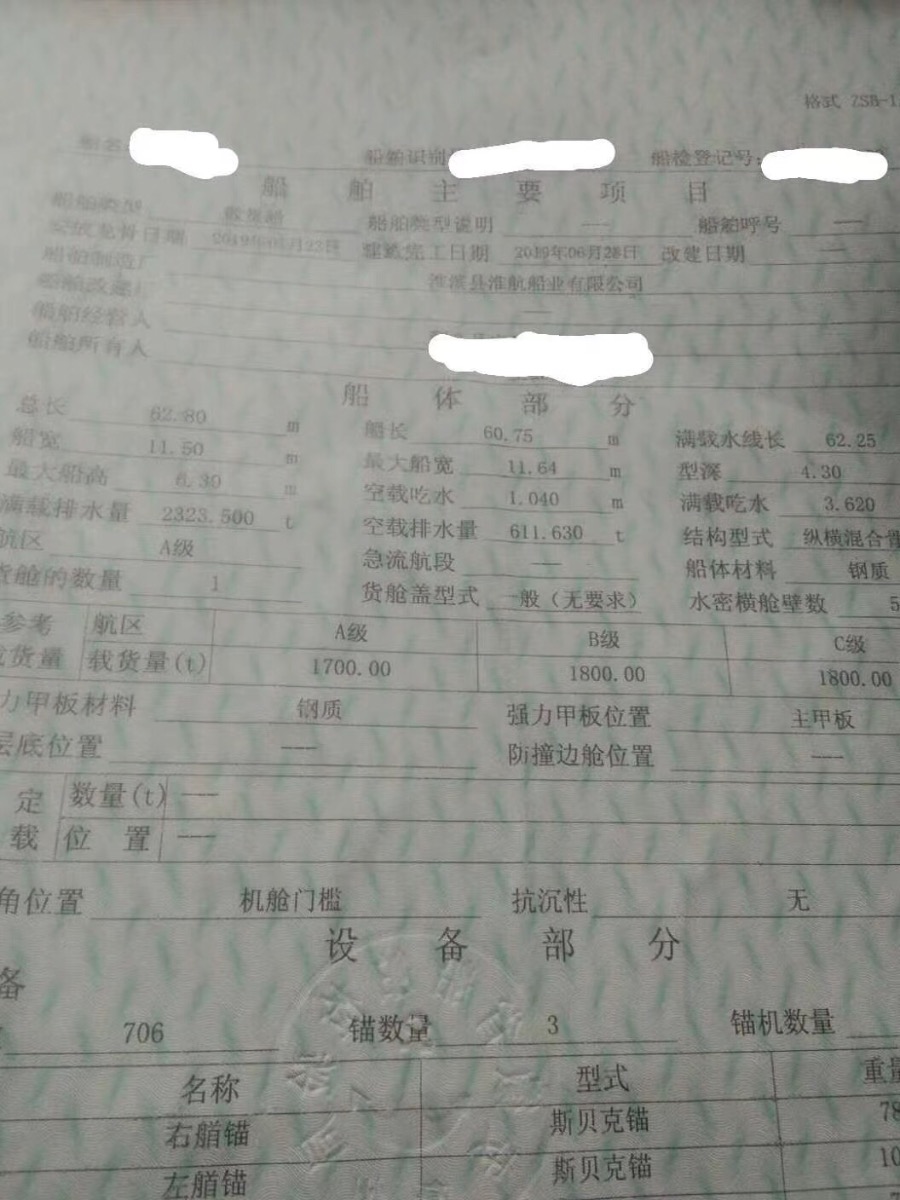 格式 ZSB-1
船名
船舶识别 船检登记号:
船 舶 主 要 项 目
船舶类型 散货船 船舶类型说明 —— 船舶呼号 ——
安放龙骨日期 建造完工日期 2019年06月28日 改建日期 ——
船舶制造厂 淮滨县淮航船业有限公司
船舶改建厂 ——
船舶经营人
船舶所有人
船 体 部 分
总长 62.80 m 船长 60.75 m 满载水线长 62.25
船宽 11.50 m 最大船宽 11.64 m 型深 4.30
最大船高 6.39 m 空载吃水 1.040 m 满载吃水 3.620
满载排水量 2323.500 t 空载排水量 611.630 t 结构型式 纵横混合骨
航区 A级 急流航段 —— 船体材料 钢质
货舱的数量 1 货舱盖型式 一般（无要求） 水密横舱壁数 5
参考 航区 A级 B级 C级
载货量 载货量(t) 1700.00 1800.00 1800.00
力甲板材料 钢质 强力甲板位置 主甲板
层底位置 —— 防撞边舱位置 ——
定 数量(t) ——
载 位 置 ——
角位置 机舱门槛 抗沉性 无
设 备 部 分
备
706 锚数量 3 锚机数量
名称 型式 重量
右艏锚 斯贝克锚 78
左艏锚 斯贝克锚 10